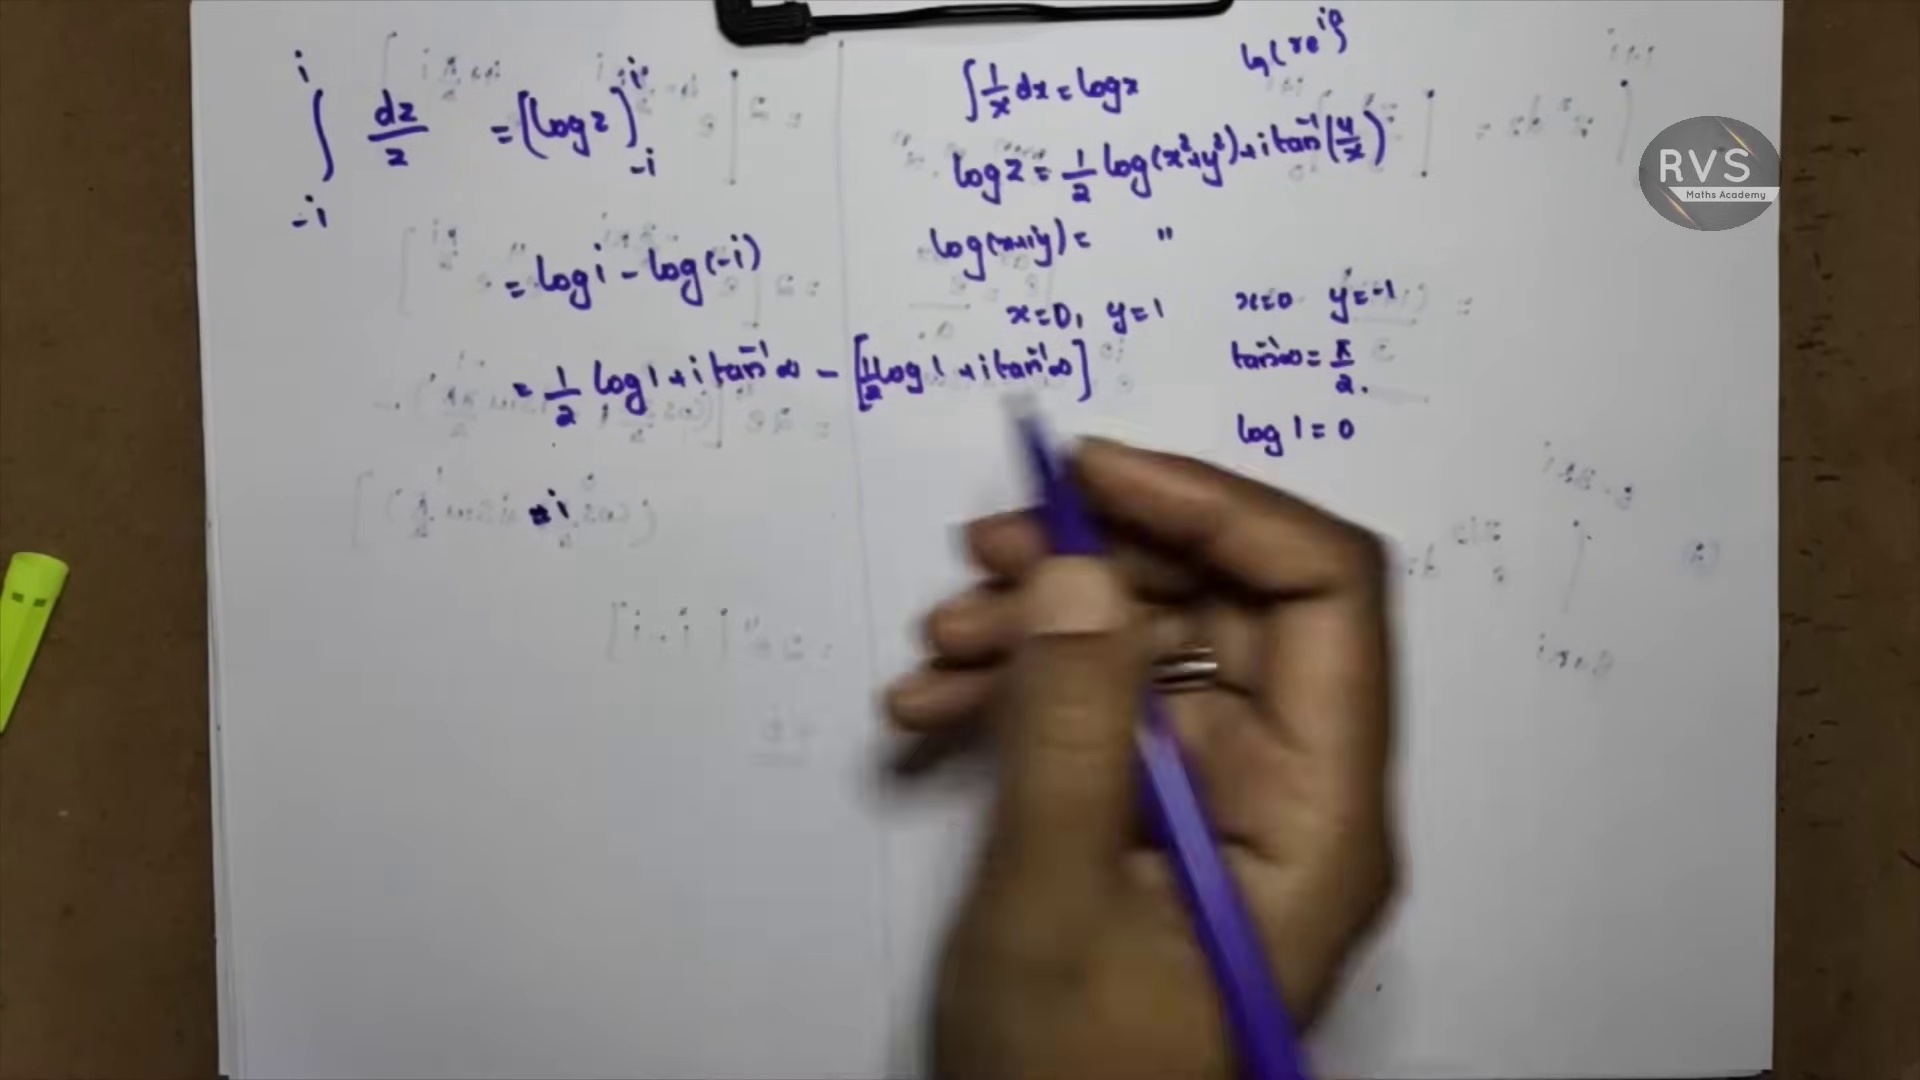 i
∫ dz/z = [log z]^i_-i
-i
= log i - log(-i)
= 1/2 log 1 + i tan^-1 ∞ - [1/2 log 1 + i tan^-1 ∞]
= i
∫ 1/x dx = log x
log z = 1/2 log(x²+y²) + i tan^-1 (y/x)
log(x+iy) = "
x=0, y=1
x=0 y=-1
tan^-1 ∞ = π/2.
log 1 = 0
RVS
Maths Academy